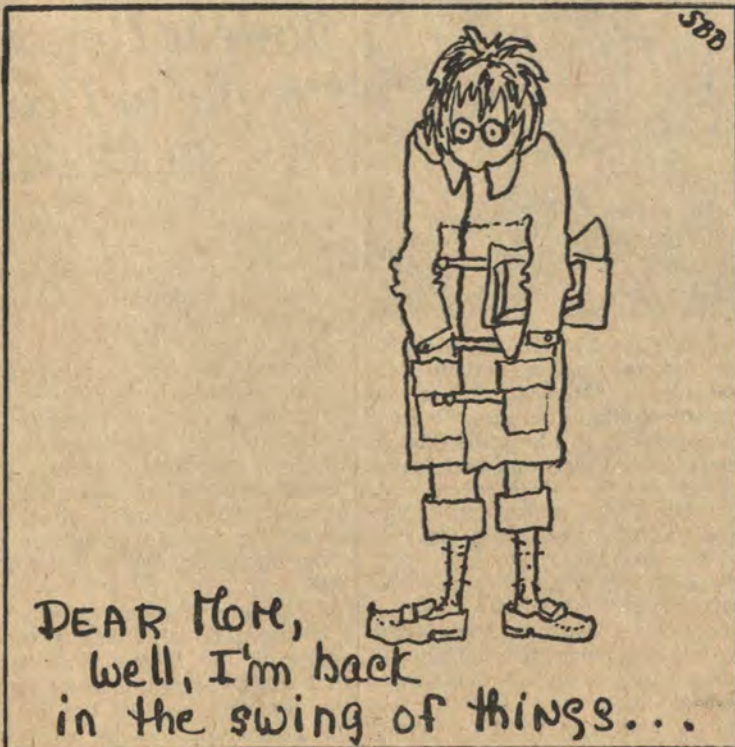 SBD
DEAR MOM,
well, I'm back
in the swing of things...